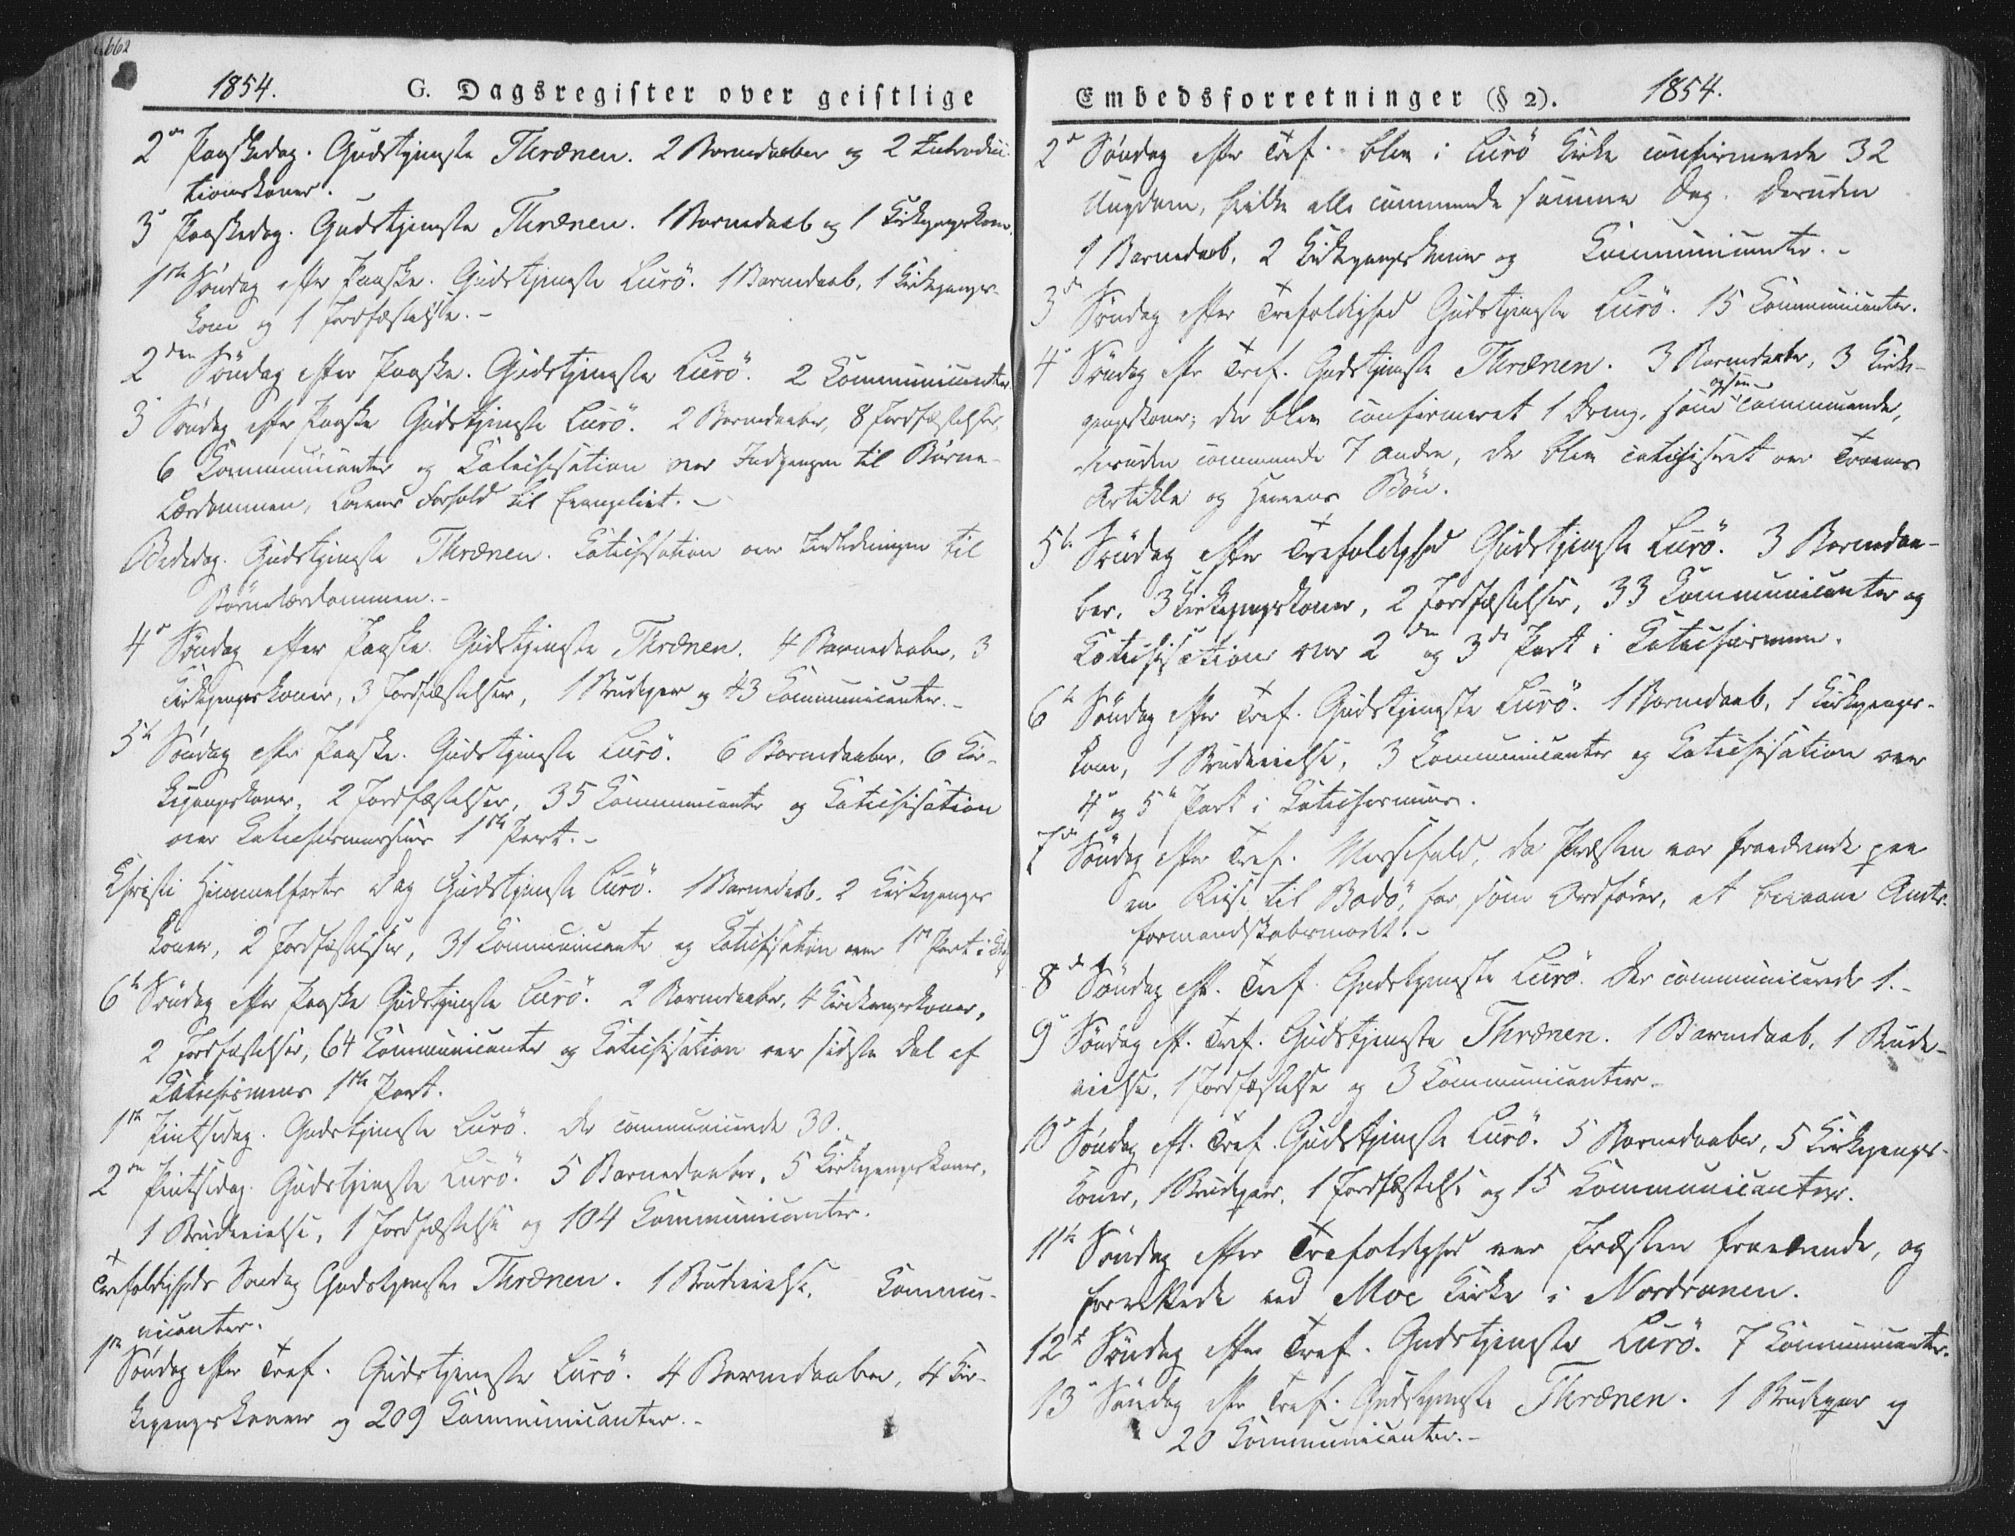 662
1854. G. Dagsregister over geistlige
2en Paaskedag. Gudstjeneste Thrænen. 2 Barnedaaber og 2 Introduc-
tionskoner.
3e Paaskedag. Gudstjeneste Thrænen. 1 Barnedaab og 1 Kirkegangskone.
1ste Søndag efter Paaske. Gudstjeneste Lurö. 1 Barnedaab, 1 Kirkegangs-
kone og 1 Jordfæstelse.-
2den Søndag efter Paaske. Gudstjeneste Lurö. 2 Communicanter
3e Søndag efter Paaske Gudstjeneste Lurö. 2 Barnedaaber, 8 Jordfæstelser,
6 Communicanter og Catechisation over Indgangen til Børne-
Lærdommen, Lovens Forhold til Evangeliet.-
Bededag. Gudstjeneste Thrænen. Catechisation over Indledningen til
Børnelærdommen.-
4e Søndag efter Paaske. Gudstjeneste Thrænen. 4 Barnedaaber, 3
Kirkegangskoner, 3 Jordfæstelser, 1 Brudepar og 43 Communicanter.-
5te Søndag efter Paaske. Gudstjeneste Lurö. 6 Barnedaaber, 6 Kir-
kegangskoner, 2 Jordfæstelser, 35 Communicanter og Catechisation
over Catechismussens 1ste Part.-
Christi Himmelfarts Dag Gudstjeneste Lurö. 1 Barnedaab, 2 Kirkegangs
koner, 2 Jordfæstelser, 31 Communicanter og Catechisation over 1ste Part i
6te Søndag efter Paaske Gudstjeneste Lurö. 2 Barnedaaber, 4 Kirkegangskoner,
2 Jordfæstelser, 64 Communicanter og Catechisation over sidste Del af
Catechismus 1ste Part.
1ste Pintsedag. Gudstjeneste Lurö. Der communicerede 30.
2en Pintsedag. Gudstjeneste Lurö. 5 Barnedaaber, 5 Kirkegangskoner,
1 Brudevielse, 1 Jordfæstelse og 104 Communicanter.
Trefoldigheds Søndag Gudstjeneste Thrænen. 1 Brudevielse, Commu-
nicanter.
1ste Søndag efter Tref. Gudstjeneste Lurö. 4 Barnedaaber, 4 Kir-
kegangskoner og 209 Communicanter.-
Embedsforretninger (§ 2). 1854.
2e Søndag efter Tref. blev i Lurö Kirke confirmerede 32
Ungdom, hvilke alle communicerede samme Dag. Desuden
1 Barnedaab, 2 Kirkegangskoner og Communicanter.-
3de Søndag efter Trefoldighed Gudstjeneste Lurö. 15 Communicanter.
4e Søndag eftr Tref. Gudstjeneste Thrænen. 3 Barnedaaber, 3 Kirke-
gangskoner; der blev confirmeret 1 Dreng, som ogsaa communicerede,
desuden communicerede 7 andre, der blev catechiseret over Troens
Artikle og Herrens Bøn.
5te Søndag efter Trefoldighed Gudstjeneste Lurö. 3 Barnedaa-
ber, 3 Kirkegangskoner, 2 Jordfæstelser, 33 Communicanter og
Catechisation over 2den og 3de Part i Catechismen.
6te Søndag efter Tref. Gudstjeneste Lurö. 1 Barnedaab, 1 Kirkegangs-
kone, 1 Brudevielse, 3 Communicanter og Catechisation over
4e og 5te Part i Catechismus.
7de Søndag efter Tref. Messefald, da Præsten var fraværende paa
en Reise til Bodö, for som Ordfører, at bivaane Amts-
formandskabsmødet.-
8de Søndag eft. Tref. Gudstjeneste Lurö. Der communicerede 1.-
9e Søndag eft. Tref. Gudstjeneste Thrænen. 1 Barnedaab, 1 Brude-
vielse, 1 Jordfæstelse og 3 Communicanter.
10e Søndag eft. Tref. Gudstjeneste Lurö. 5 Barnedaaber, 5 Kirkegangs-
koner, 1 Brudepar, 1 Jordfæstelse og 15 Communicanter.
11te Søndag efter Trefoldighed var Præsten fraværende, og
forrettede ved Moe Kirke i Nordranen.
12te Søndag efter Tref. Gudstjeneste Lurö. 7 Communicanter.
13e Søndag eftr Tref. Gudstjeneste Thrænen. 1 Brudepar og
20 Communicanter.-